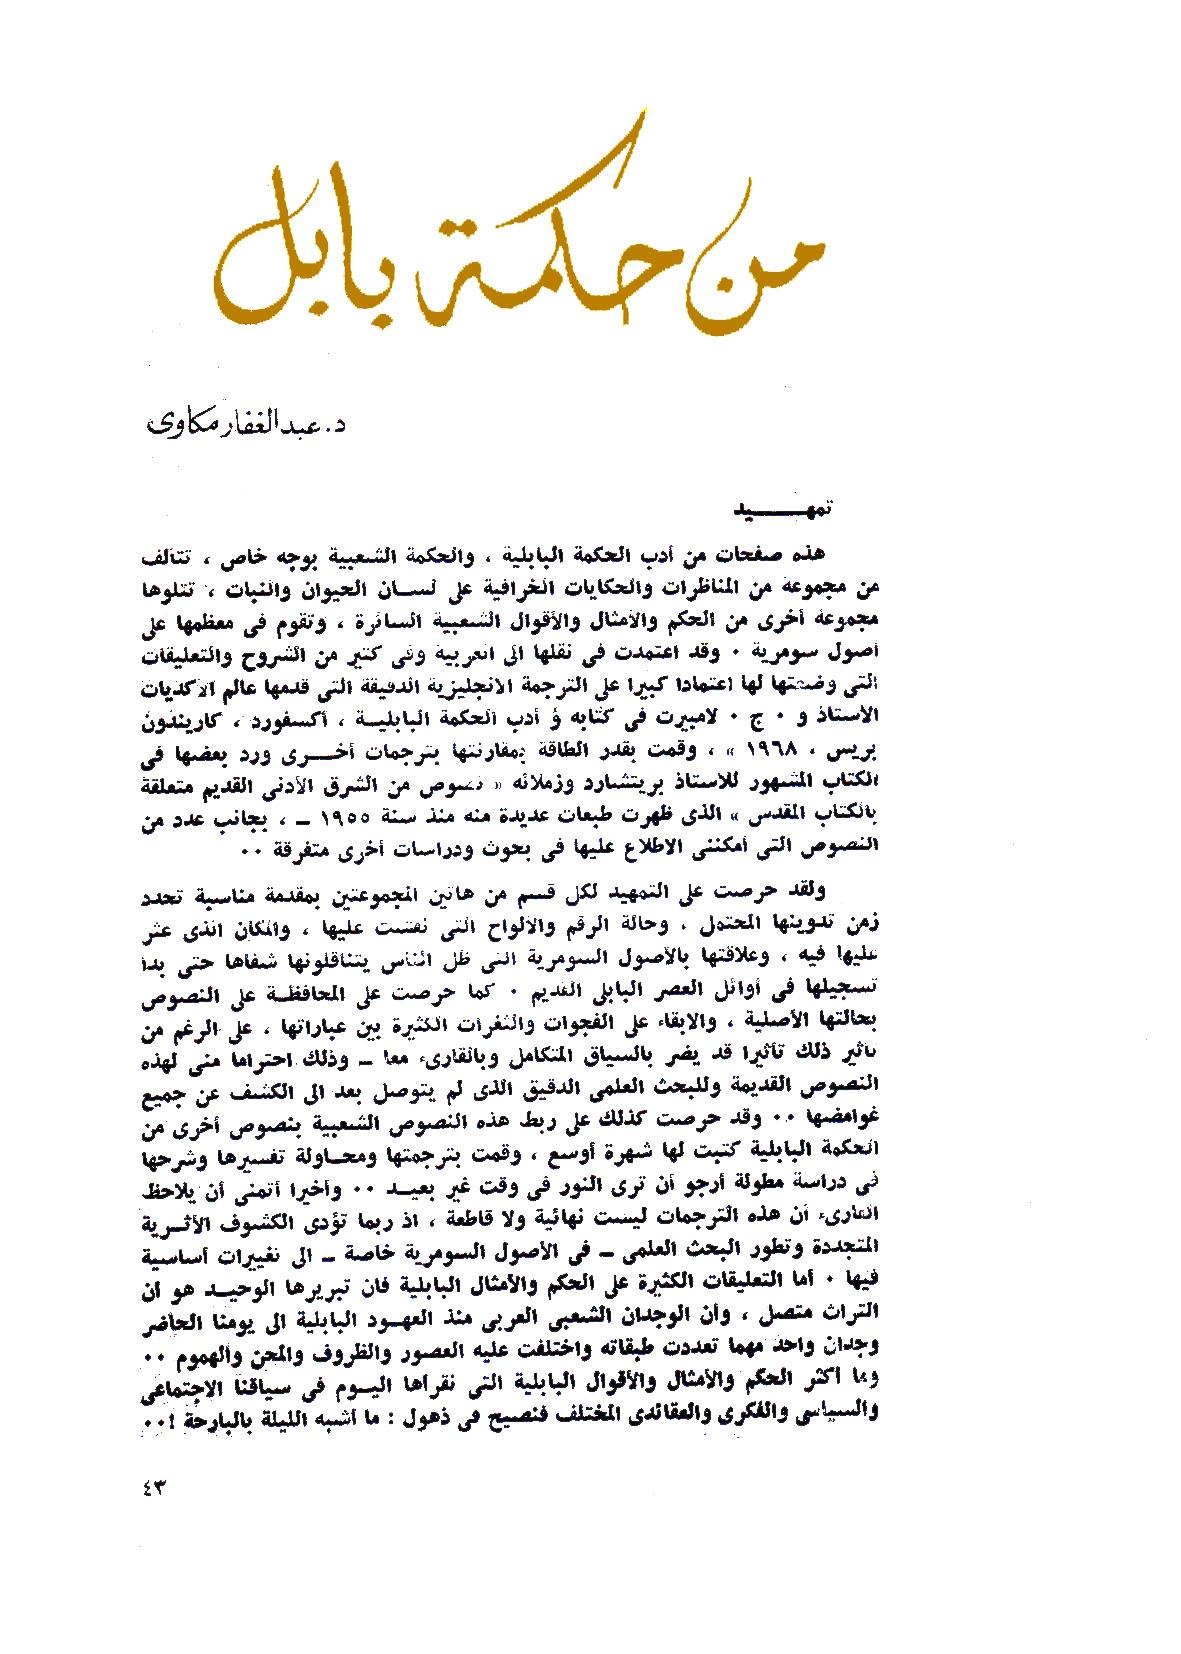 من حكمة بابل
د. عبد الغفار مكاوى
تمهيد
هذه صفحات من أدب الحكمة البابلية ، والحكمة الشعبية بوجه خاص ، تتألف
من مجموعة من المناظرات والحكايات الخرافية على لسان الحيوان والنبات ، تتلوها
مجموعة أخرى من الحكم والأمثال والأقوال الشعبية السائرة ، وتقوم فى معظمها على
أصول سومرية ٠ وقد اعتمدت فى نقلها الى العربية وفى كثير من الشروح والتعليقات
التى وضعتها لها اعتمادا كبيرا على الترجمة الانجليزية الدقيقة التى قدمها عالم الأكديات
الأستاذ و ٠ ج ٠ لامبيرت فى كتابه أدب الحكمة البابلية ، أكسفورد ، كاريندون
بريس ، ١٩٦٨ » ، وقمت بقدر الطاقة بمقارنتها بترجمات أخرى ورد بعضها فى
الكتاب المشهور للأستاذ بريتشارد وزملائه « نصوص من الشرق الأدنى القديم متعلقة
بالكتاب المقدس » الذى ظهرت طبعات عديدة منه منذ سنة ١٩٥٥ – ، بجانب عدد من
النصوص التى أمكننى الاطلاع عليها فى بحوث ودراسات أخرى متفرقة ٠٠
ولقد حرصت على التمهيد لكل قسم من هاتين المجموعتين بمقدمة مناسبة تحدد
زمن تدوينها المحتمل ، وحالة الرقم والألواح التى نقشت عليها ، والمكان الذى عثر
عليها فيه ، وعلاقتها بالأصول السومرية التى ظل الناس يتناقلونها شفاها حتى بدأ
تسجيلها فى أوائل العصر البابلى القديم ٠ كما حرصت على المحافظة على النصوص
بحالتها الأصلية ، والابقاء على الفجوات والثغرات الكثيرة بين عباراتها ، على الرغم من
تأثير ذلك تأثيرا قد يضر بالسياق المتكامل وبالقارىء معا – وذلك احتراما منى لهذه
النصوص القديمة وللبحث العلمى الدقيق الذى لم يتوصل بعد الى الكشف عن جميع
غوامضها ٠٠ وقد حرصت كذلك على ربط هذه النصوص الشعبية بنصوص أخرى من
الحكمة البابلية كتبت لها شهرة أوسع ، وقمت بترجمتها ومحاولة تفسيرها وشرحها
فى دراسة مطولة أرجو أن ترى النور فى وقت غير بعيد ٠٠ وأخيرا أتمنى أن يلاحظ
القارىء أن هذه الترجمات ليست نهائية ولا قاطعة ، اذ ربما تؤدى الكشوف الأثرية
المتجددة وتطور البحث العلمى – فى الأصول السومرية خاصة – الى تغييرات أساسية
فيها ٠ أما التعليقات الكثيرة على الحكم والأمثال البابلية فان تبريرها الوحيد هو أن
التراث متصل ، وأن الوجدان الشعبى العربى منذ العهود البابلية الى يومنا الحاضر
وجدان واحد مهما تعددت طبقاته واختلفت عليه العصور والظروف والمحن والهموم ٠٠
وما أكثر الحكم والأمثال والأقوال البابلية التى نقرأها اليوم فى سياقنا الاجتماعى
والسياسى والفكرى والعقائدى المختلف فنصيح فى ذهول : ما أشبه الليلة بالبارحة !٠٠
٤٣